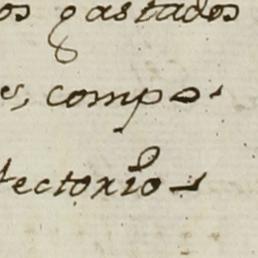 os gastados
es, compo
tectorio